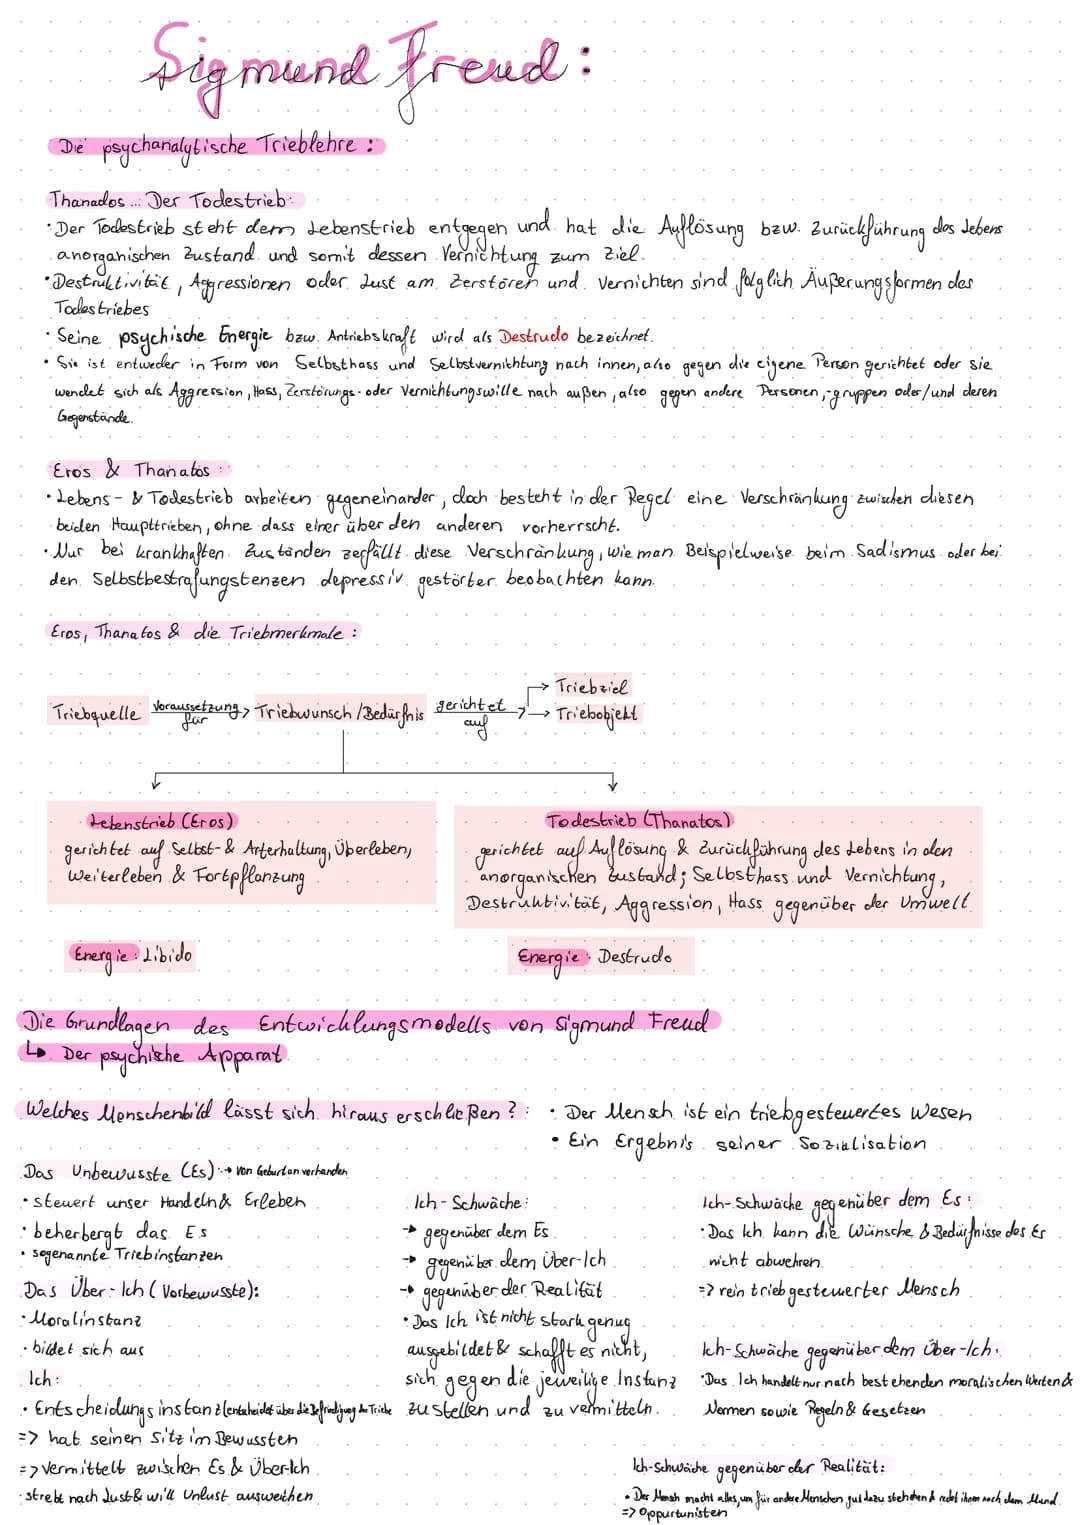 Sigmund Freud:
Die psychanalytische Trieblehre:
Thanados... Der Todestrieb:
• Der Todestrieb steht dem Lebenstrieb entgegen und hat die Auflösung bzw. Zurückführung des Lebens
anorganischen Zustand und somit dessen Vernichtung zum Ziel.
• Destruktivität, Aggressionen oder Lust am Zerstören und Vernichten sind folglich Äußerungsformen des
Todestriebes
• Seine psychische Energie bzw. Antriebskraft wird als Destrudo bezeichnet.
• Sie ist entweder in Form von Selbsthass und Selbstvernichtung nach innen, also gegen die eigene Person gerichtet oder sie
wendet sich als Aggression, Hass, Zerstörungs- oder Vernichtungswille nach außen, also gegen andere Personen,-gruppen oder/und deren
Gegenstände.
Eros & Thanatos:
• Lebens- & Todestrieb arbeiten gegeneinander, doch besteht in der Regel eine Verschränkung zwischen diesen
beiden Haupttrieben, ohne dass einer über den anderen vorherrscht.
• Nur bei krankhaften Zuständen zerfällt diese Verschränkung, wie man Beispielweise beim Sadismus oder bei
den Selbstbestrafungstenzen depressiv gestörter beobachten kann.
Eros, Thanatos & die Triebmerkmale:
Triebquelle Voraussetzung für → Triebwunsch/Bedürfnis gerichtet auf → Triebziel
→ Triebobjekt
Lebenstrieb (Eros)
gerichtet auf Selbst- & Arterhaltung, Überleben,
Weiterleben & Fortpflanzung
Energie: Libido
Todestrieb (Thanatos)
gerichtet auf Auflösung & Zurückführung des Lebens in den
anorganischen Zustand; Selbsthass und Vernichtung,
Destruktivität, Aggression, Hass gegenüber der Umwelt
Energie: Destrudo
Die Grundlagen des Entwicklungsmodells von Sigmund Freud
↳ Der psychische Apparat
Welches Menschenbild lässt sich hiraus erschließen?: • Der Mensch ist ein triebgesteuertes Wesen
• Ein Ergebnis seiner Sozialisation
Das Unbewusste (Es): → von Geburt an vorhanden
• steuert unser Handeln & Erleben
• beherbergt das Es
• sogenannte Triebinstanzen
Das Über-Ich (Vorbewusste):
• Moralinstanz
• bildet sich aus
Ich:
• Entscheidungsinstanz (entscheidet über die Befriedigung der Triebe
=> hat seinen Sitz im Bewussten
=> vermittelt zwischen Es & Über-Ich
• strebt nach Lust & will Unlust ausweichen
Ich-Schwäche:
→ gegenüber dem Es
→ gegenüber dem Über-Ich
→ gegenüber der Realität
• Das Ich ist nicht stark genug
ausgebildet & schafft es nicht,
sich gegen die jeweilige Instanz
zu stellen und zu vermitteln.
Ich-Schwäche gegenüber dem Es:
• Das Ich kann die Wünsche & Bedürfnisse des Es
nicht abwehren.
=> rein triebgesteuerter Mensch
Ich-Schwäche gegenüber dem Über-Ich:
• Das Ich handelt nur nach bestehenden moralischen Werten &
Normen sowie Regeln & Gesetzen
Ich-Schwäche gegenüber der Realität:
• Der Mensch macht alles, um für andere Menschen gut dazu stehehen & redet ihnen nach dem Mund.
=> Oppurtunisten